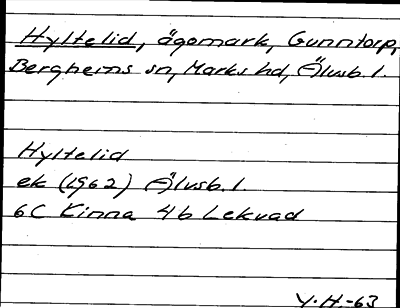 Hyltelid, ägomark, Gunntorp,
Berghems sn, Marks hd, Älvsb. l.
Hyltelid
ek (1962) Älvsb. l.
6C Kinna 4b Lekvad
Y. H.-63